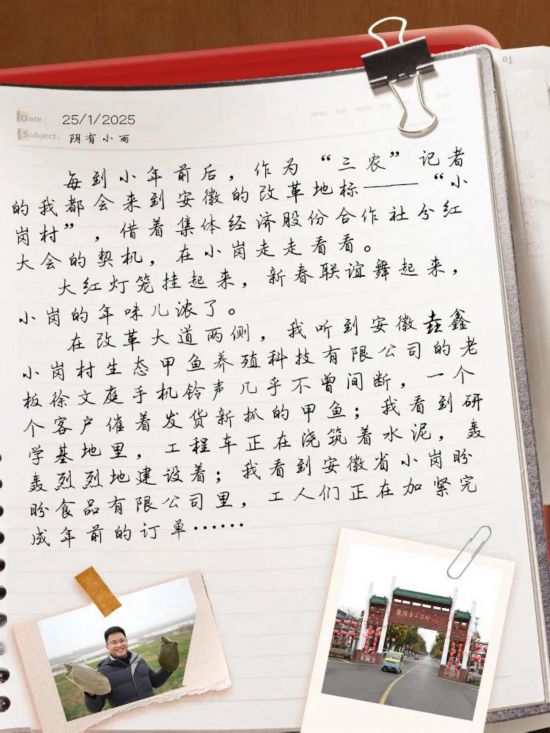 Date: 25/1/2025
Subject: 阴有小雨
每到小年前后，作为“三农”记者
的我都会来到安徽的改革地标——“小
岗村”，借着集体经济股份合作社分红
大会的契机，在小岗走走看看。
大红灯笼挂起来，新春联谊舞起来，
小岗的年味儿浓了。
在改革大道两侧，我听到安徽垚鑫
小岗村生态甲鱼养殖科技有限公司的老
板徐文庭手机铃声几乎不曾间断，一个
个客户催着发货新抓的甲鱼；我看到研
学基地里，工程车正在浇筑着水泥，轰
轰烈烈地建设着；我看到安徽省小岗盼
盼食品有限公司里，工人们正在加紧完
成年前的订单……